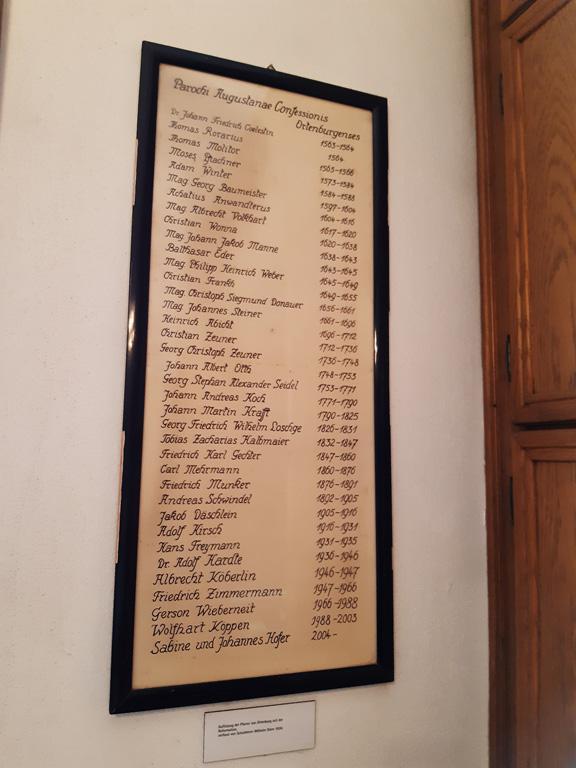 Parochi Augustanae Confessionis
Ortenburgenses
Dr. Johann Friedrich Coelestin 1563-1564
Thomas Rorarius 1564
Thomas Molitor 1565-1566
Moses 1573-1584
Adam Winter 1584-1588
Mag Georg Baumeister 1597-1604
Achatius Anwandterus 1604-1616
Mag Albrecht Volkhart 1617-1620
Christian Wonna 1620-1638
Mag Johann Jakob Manne 1638-1643
Balthasar Eder 1643-1645
Mag Philipp Heinrich Weber 1645-1649
Christian Frankh 1649-1655
Mag. Christoph Siegmund Donauer 1656-1661
Mag Johannes Steiner 1661-1696
Heinrich Abicht 1696-1712
Christian Zeuner 1712-1736
Georg Christoph Zeuner 1736-1748
Johann Albert Oth 1748-1753
Georg Stephan Alexander Seidel 1753-1771
Johann Andreas Koch 1771-1790
Johann Martin Krafft 1790-1825
Georg Friedrich Wilhelm Loschge 1826-1831
Tobias Zacharias Kalbmaier 1832-1847
Friedrich Karl Gechter 1847-1860
Carl Mehrmann 1860-1876
Friedrich Munker 1876-1891
Andreas Schwindel 1892-1905
Jakob Däschlein 1905-1916
Adolf Kirsch 1916-1931
Hans Freymann 1931-1935
Dr. Adolf Hardte 1936-1946
Albrecht Köberlin 1946-1947
Friedrich Zimmermann 1947-1966
Gerson Wieberneit 1966-1988
Wolfhart Koppen 1988-2003
Sabine und Johannes Hofer 2004-
Auflistung der Pfarrer von Ortenburg seit der
Reformation,
verfasst von Schulrektor Wilhelm